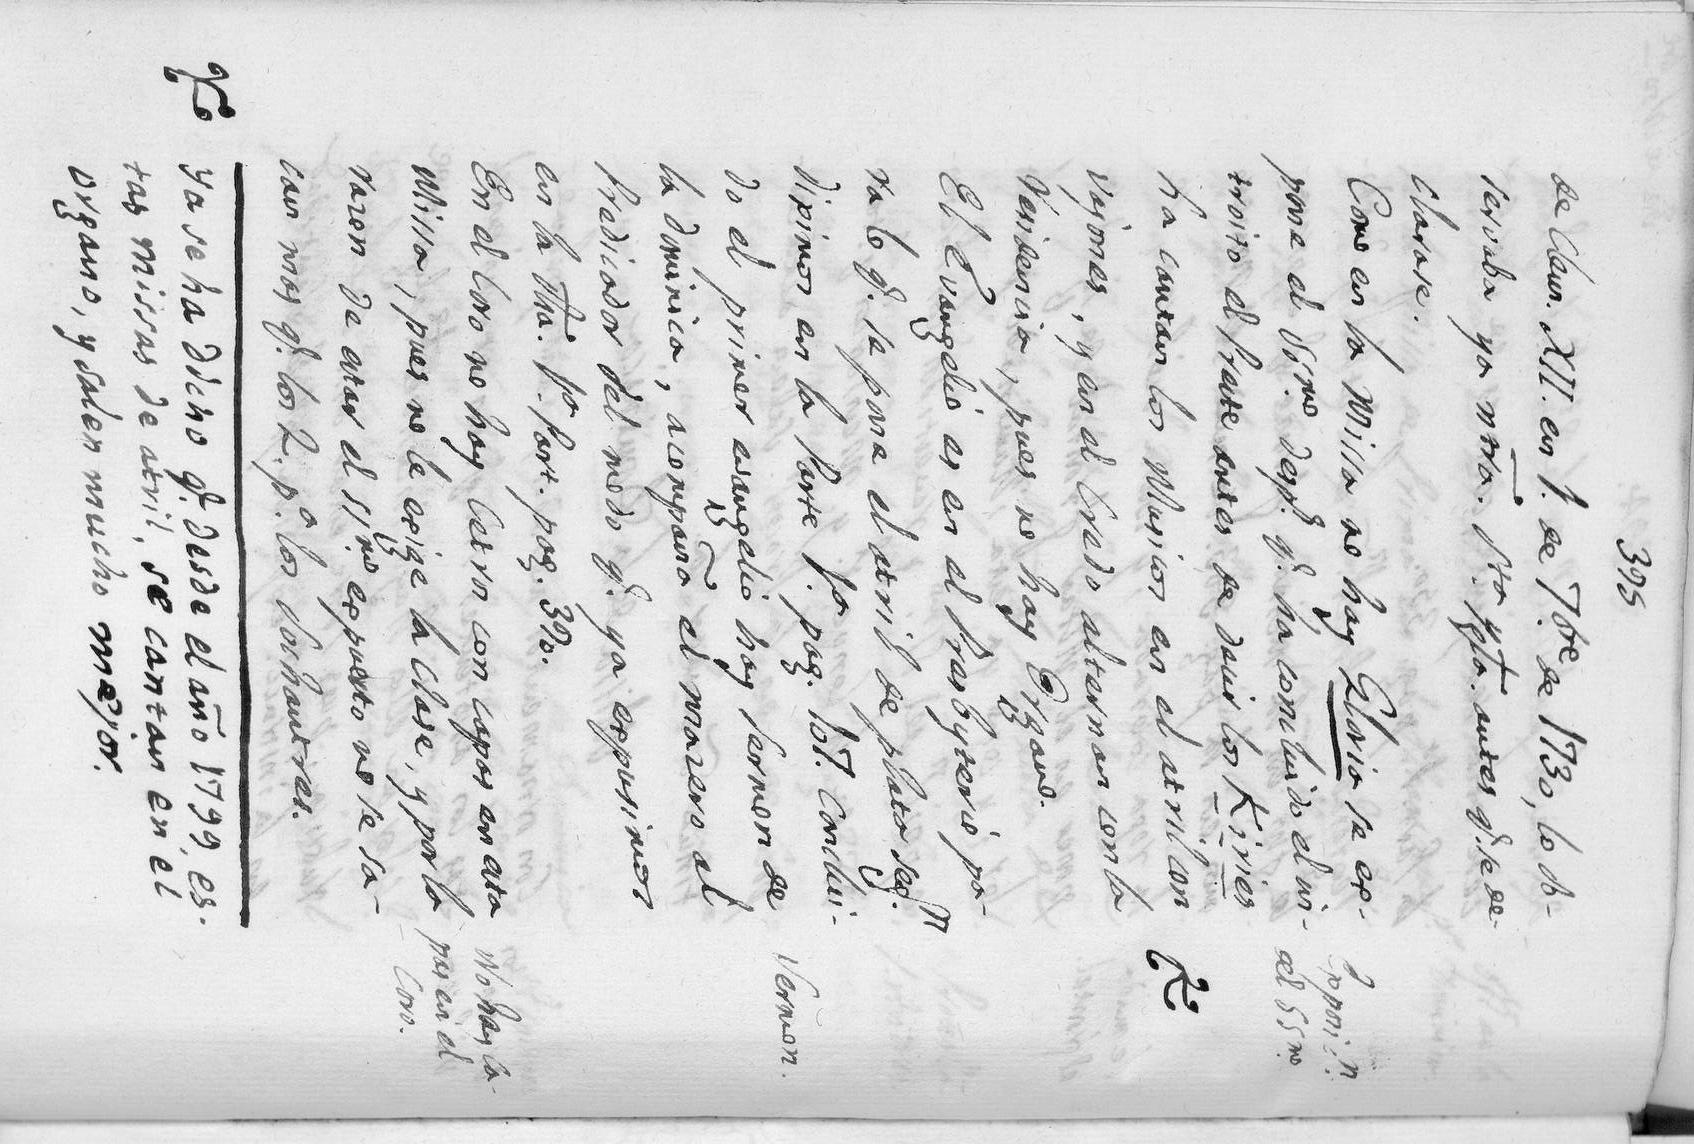 395
de Clem. XII. en 1. de 7bre de 1730, lo ob-
servaba ya nrã. Sta ygla. antes q.e se de-
clarase.
Como en la Missa no hay Gloria se ex-
pone el SSmo desp.s q.e ha concluido el in-
troito el Preste antes de decir los Kiries
ha cantan los Musicos en el atril con
vajones, y en el Credo alternan con la
Residencia, pues no hay Organo.
El Evangelio es en el Presbyterio pa-
ra lo q.e se pone el atril de plata seg.n
diximos en la Parte 1a. pag. 107. Conclui-
do el primer evangelio hay sermon de
la Dominica, acompaña el macero al
Predicador del modo q.e ya expusimos
en la Má. 1a. Part. pag. 390.
En el Coro no hay Cetros con capas en esta
Missa, pues no lo exige la Clase, y por la
razon de estar el SSmo expuesto no se sa-
can mas q.e los 2. p.a los Sochantres.
Exposic.n
del SSmo.
Sermon.
No hay ca-
pas en el
Coro.
Ya se ha dicho q.e desde el año 1799, es-
tas missas de atril, se cantan en el
organo, y salen mucho mejor.